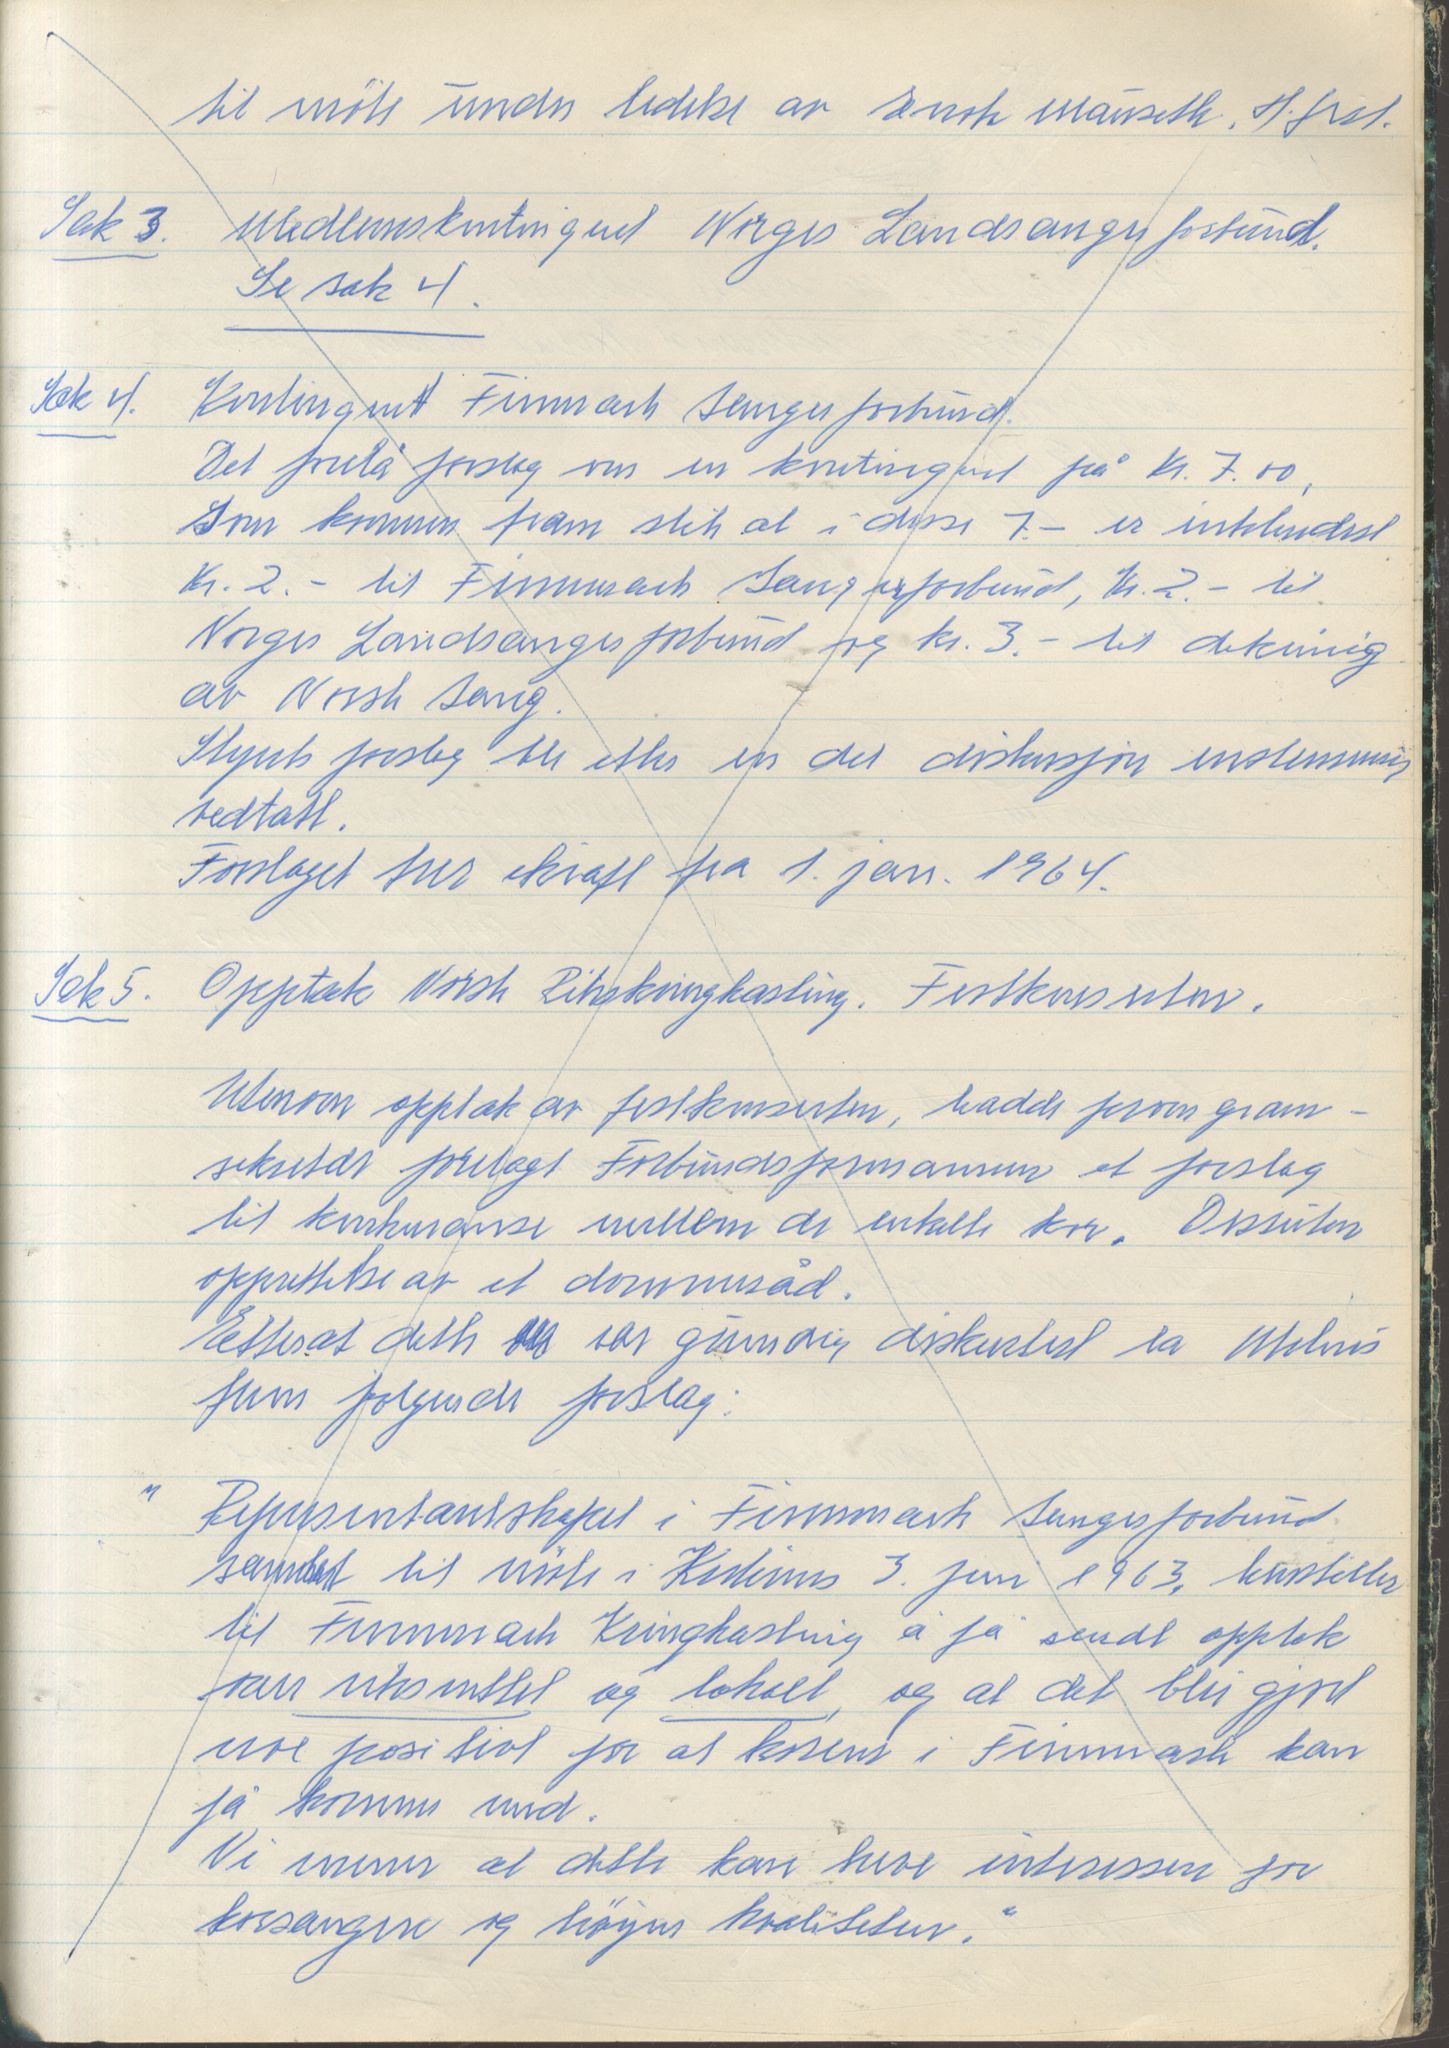 til möte under ledelse av Mauseth, H.fest.
Sak 3. Medlemskontingent Norges Landsangerforbund.
Se sak 4.
Sak 4. Kontingent Finnmark Sangerforbund.
Det forelå forslag om en kontingent på kr. 7.00,
som kommer fram slik at i disse 7.- er inkludert
kr. 2.- til Finnmark Sangerforbund, kr. 2.- til
Norges Landsangerforbund og kr. 3.- til dekning
av Norsk Sang.
Styrets forslag ble etter en del diskusjon enstemmig
vedtatt.
Forslaget trer ikraft fra 1. jan. 1964.
Sak 5. Opptak Norsk Rikskringkasting. Festkonserten.
Utenom opptak av festkonserten, hadde program-
sekretær forelagt Forbundsformannen et forslag
til konkuranse mellom de enkelte kor. Dessuten
opprettelse av et dommeråd.
Etterat dette var grundig diskutert la
frem følgende forslag:
" Representantskapet i Finnmark Sangerforbund
samlet til möte i 3. juni 1963, henstiller
til Finnmark Kringkasting å få sendt opptak
over riksnettet og lokalt, og at det blir gjort
noe positivt for at korene i Finnmark kan
få komme med.
Vi mener at dette kan heve interessen for
korsangen og höyne kvaliteten."